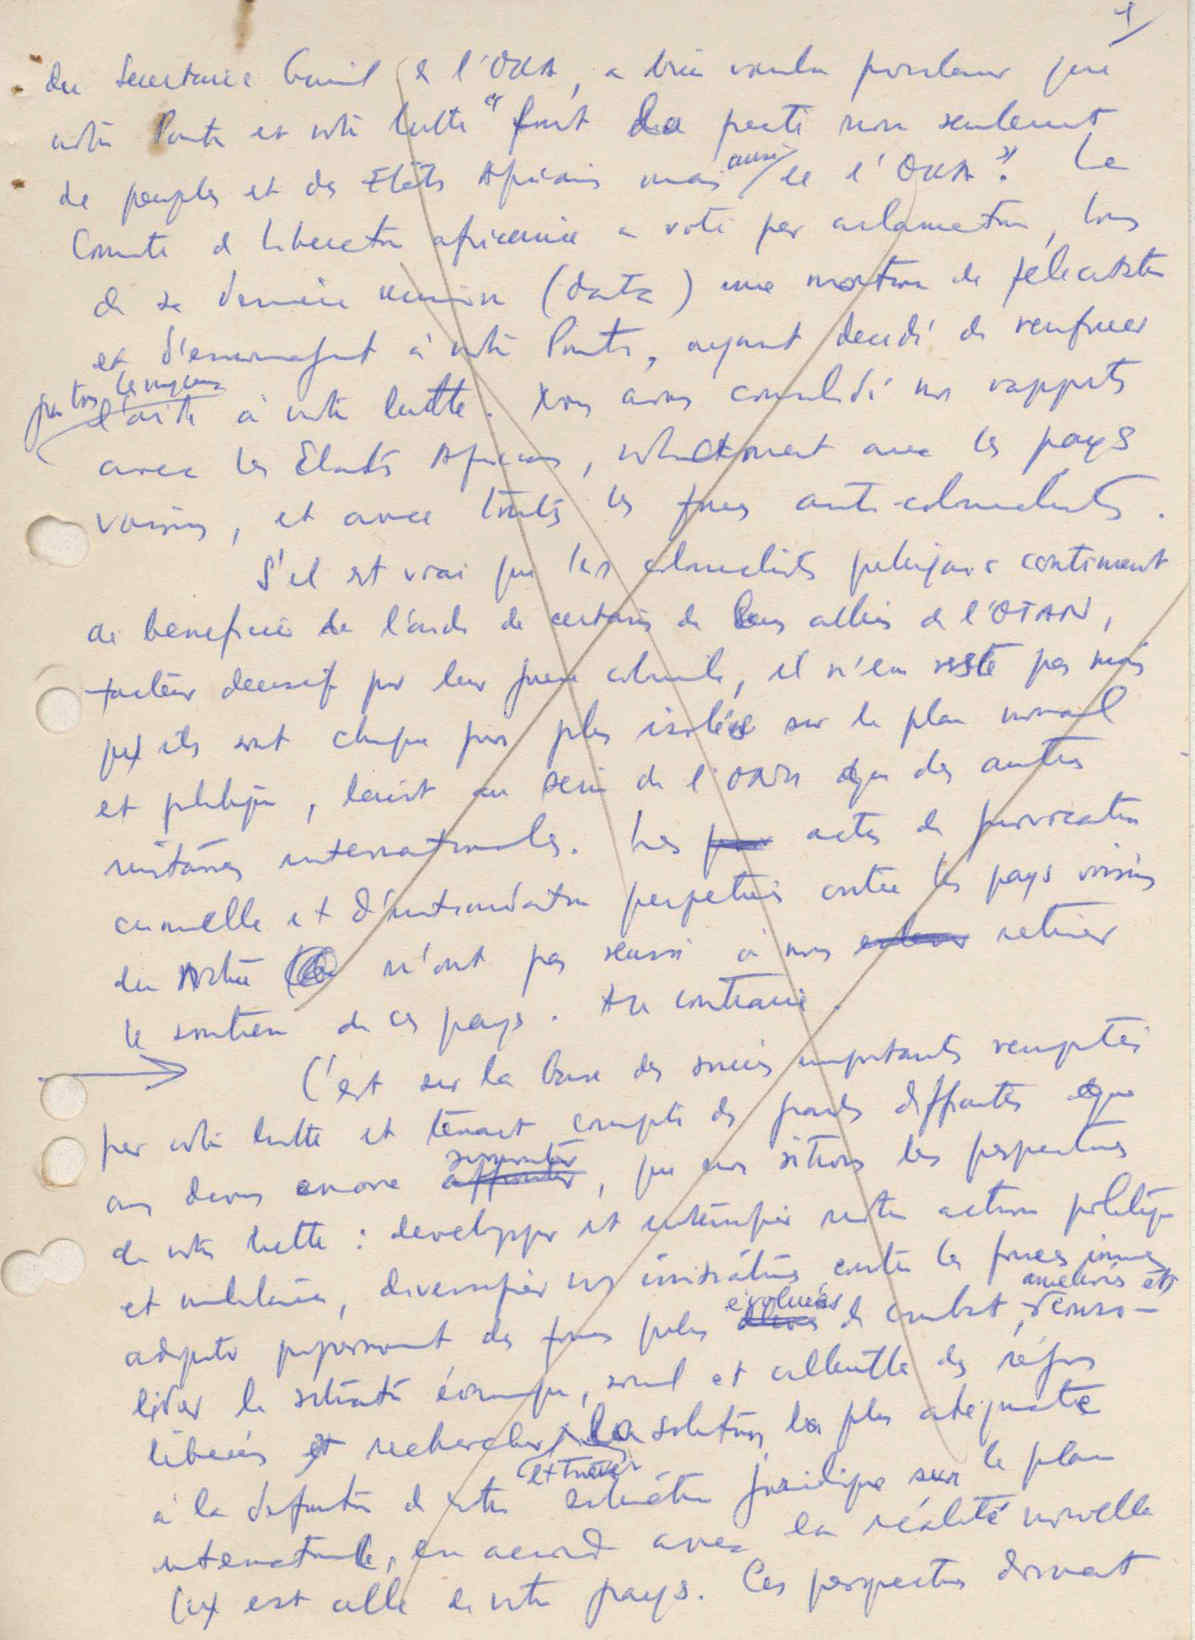 1
du Secretaire Général de l'OUA, a bien voulu proclamer que
notre Parti et notre lutte "font partie non seulement
de peuples et des Etats Africains mais aussi de l'OUA". Le
Comité de Liberation africaine a voté par aclamation, lors
de sa dernière reunion (data) une motion de felicitation
et d'encouragement à notre Parti, ayant decidé de renforcer
par tous les moyens
l'aide à notre lutte. Nous avons consolidé nos rapports
avec les Etats Africains, notamment avec les pays
voisins, et avec toutes les forces anti-colonialistes.
S'il est vrai que les colonialistes portugais continuent
de beneficier de l'aide de certains de leurs alliés de l'OTAN,
facteur decisif pour leur guerre coloniale, il n'en reste pas moins
qu'ils sont chaque jour plus isolés sur le plan moral
et politique, tant au sein de l'ONU que des autres
instances internationales. Les actes de provocation
criminelle et d'intimidation perpetrés contre les pays voisins
du notre n'ont pas reussi à nous retirer
le soutien de ces pays. Au contraire.
C'est sur la base des succès importants remportés
par notre lutte et tenant compte des grandes difficultés que
nous devons encore surmonter, que nous situons les perspectives
de notre lutte: developper et intensifier notre action politique
et militaire, diversifier nos initiatives contre les forces ennemies
améliorer et
adopter progressivement des formes plus évoluées de combat, conso-
lider la situation économique, sociale et culturelle des régions
liberées et rechercher la solution la plus adequate
à la definition de notre situation juridique sur le plan
internationale, en accord avec la réalité nouvelle
qui est celle de notre pays. Ces perspectives doivent